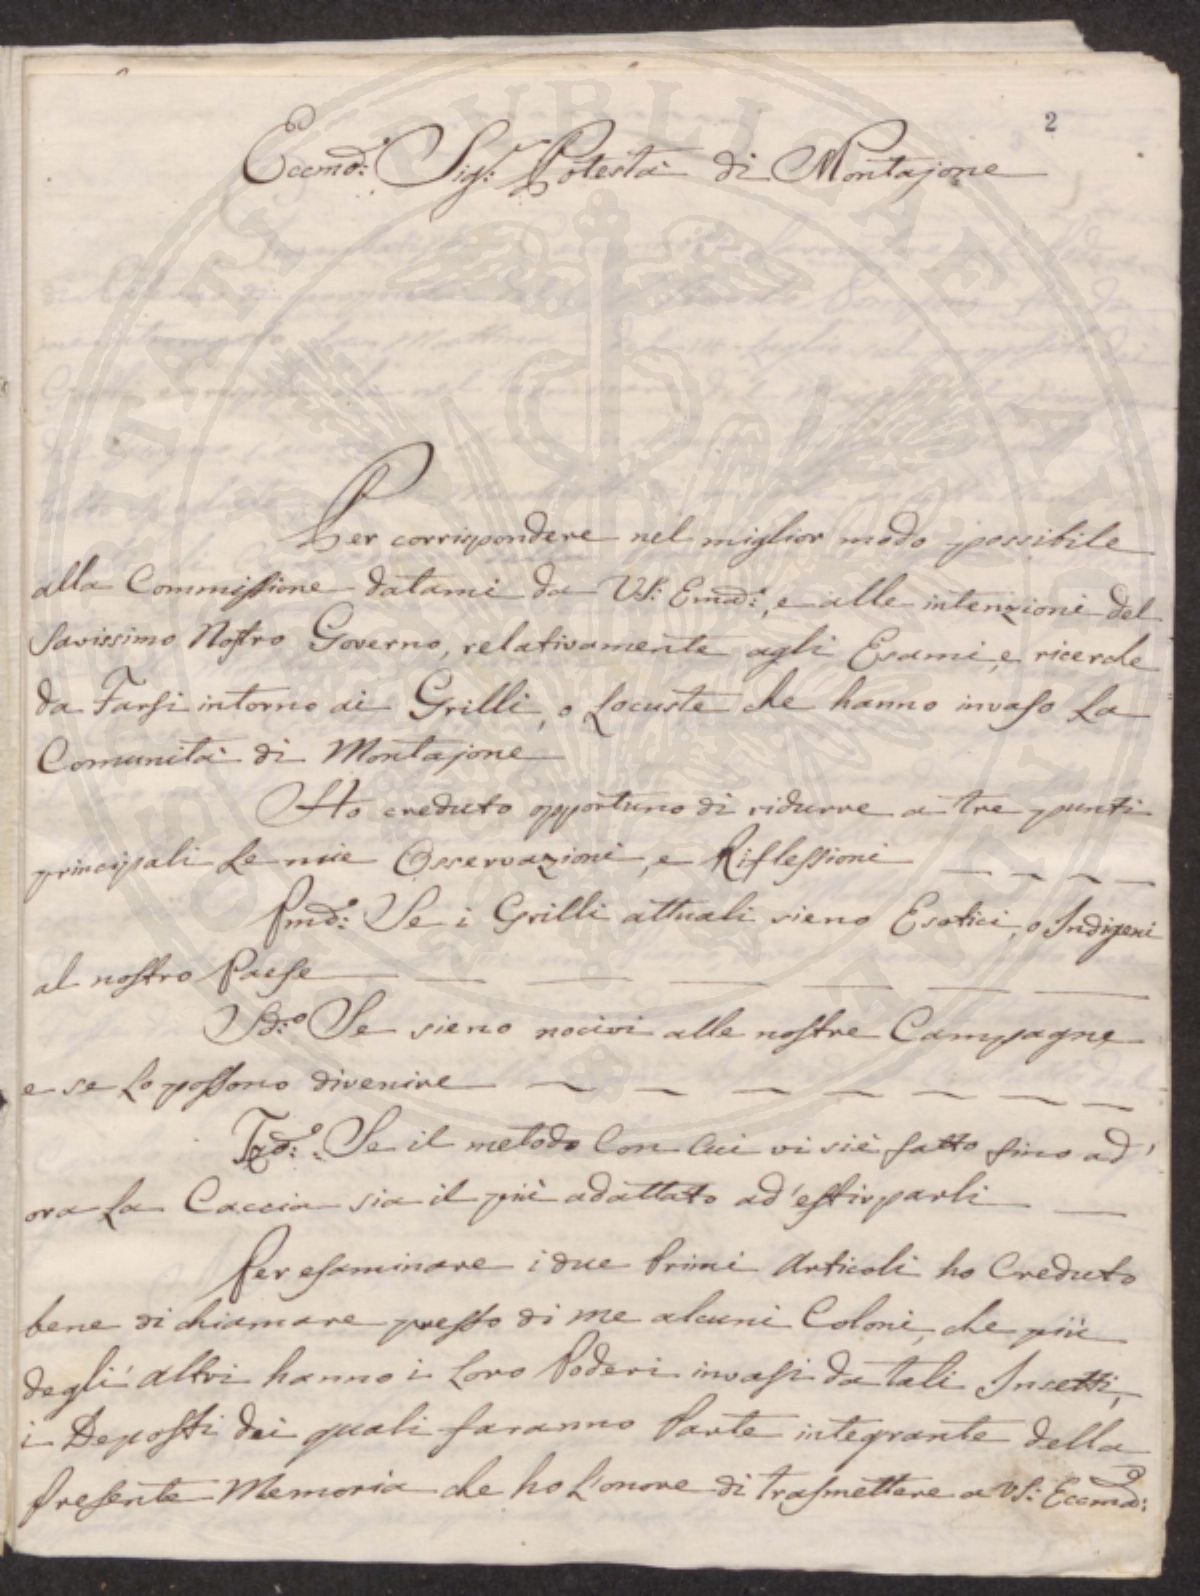 2
Eccmo: Sigr: Potestà di Montajone
Per corrispondere nel miglior modo possibile
alla Commissione datami da VS: Ecma:, e alle intenzioni del
Savissimo Nostro Governo, relativamente agli Esami, e ricerche
da Farsi intorno ai Grilli, o Locuste che hanno invaso La
Comunità di Montajone
Ho creduto opportuno di ridurre a tre punti
principali Le mie Osservazioni, e Riflessioni
Pmo: Se i Grilli attuali sieno Esotici, o Indigeni
al nostro Paese
Sdo: Se sieno nocivi alle nostre Campagne
e se Lo possono divenire
Tzo: Se il metodo Con Cui vi siè fatto fino ad'
ora La Caccia sia il più adattato ad'estirparli
Per esaminare i due Primi Articoli ho Creduto
bene di chiamare presso di me alcuni Coloni, che più
degli altri hanno i Loro Poderi invasi da tali Insetti,
i Deposti dei quali faranno Parte integrante della
Presente Memoria che ho L'onore di trasmettere a VS: Eccma: